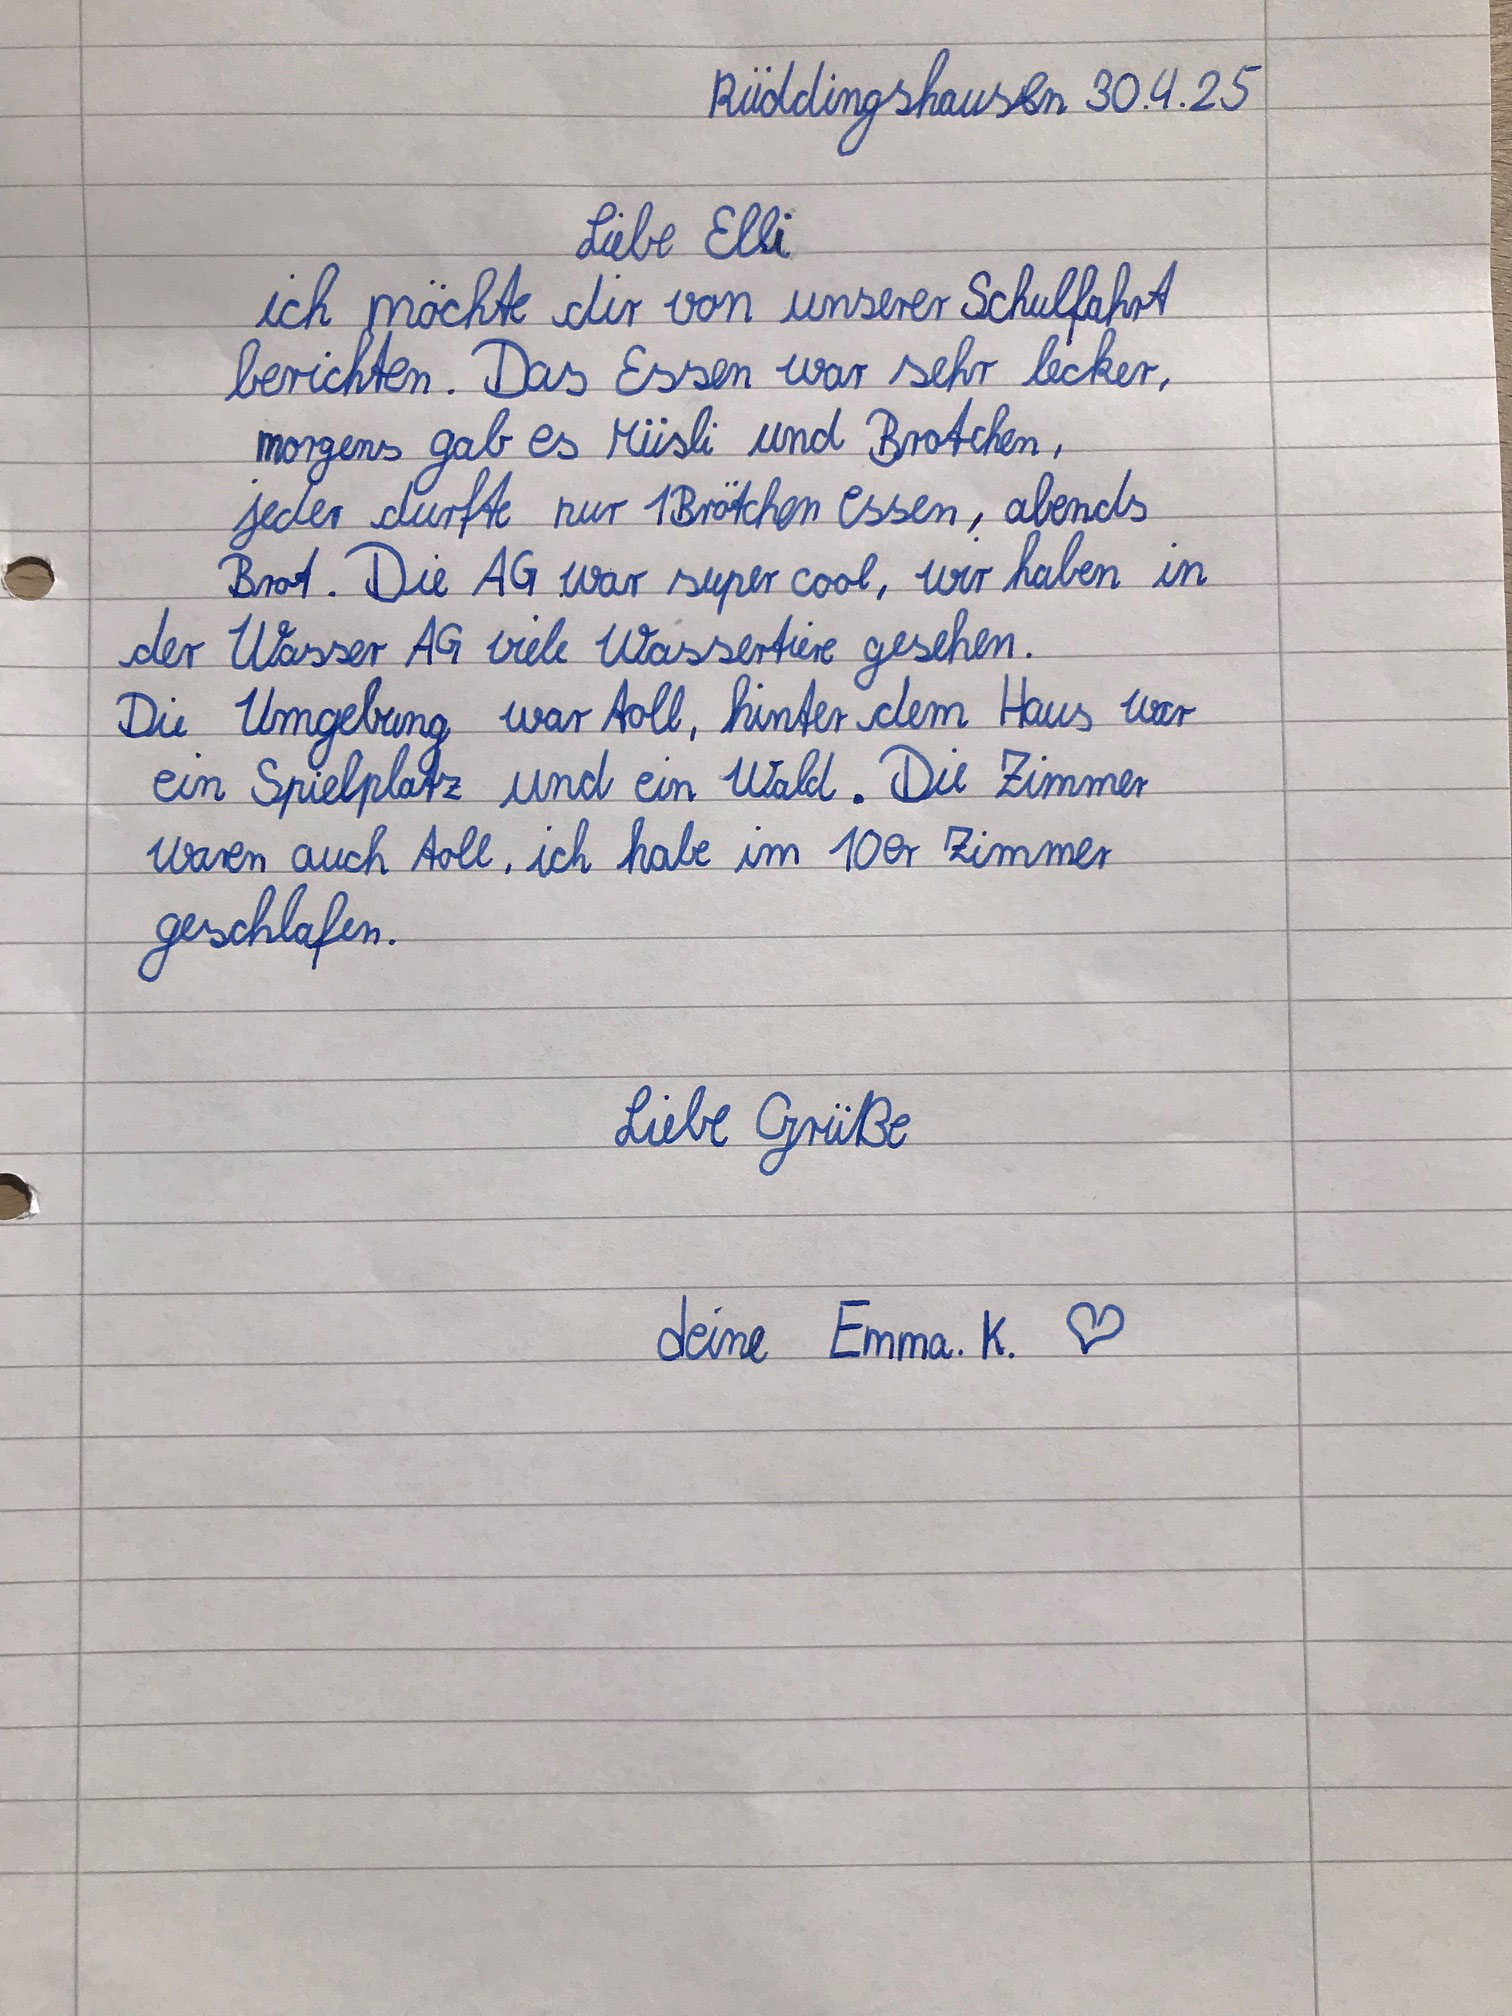 Rüddingshausen 30.4.25
Liebe Elli
ich möchte dir von unserer Schulfahrt
berichten. Das Essen war sehr lecker,
morgens gab es Müsli und Brotchen,
jeder durfte nur 1 Brötchen essen, abends
Brot. Die AG war super cool, wir haben in
der Wasser AG viele Wassertiere gesehen.
Die Umgebung war toll, hinter dem Haus war
ein Spielplatz und ein Wald. Die Zimmer
waren auch toll, ich habe im 10er Zimmer
geschlafen.
Liebe Grüße
deine Emma. K. ♡